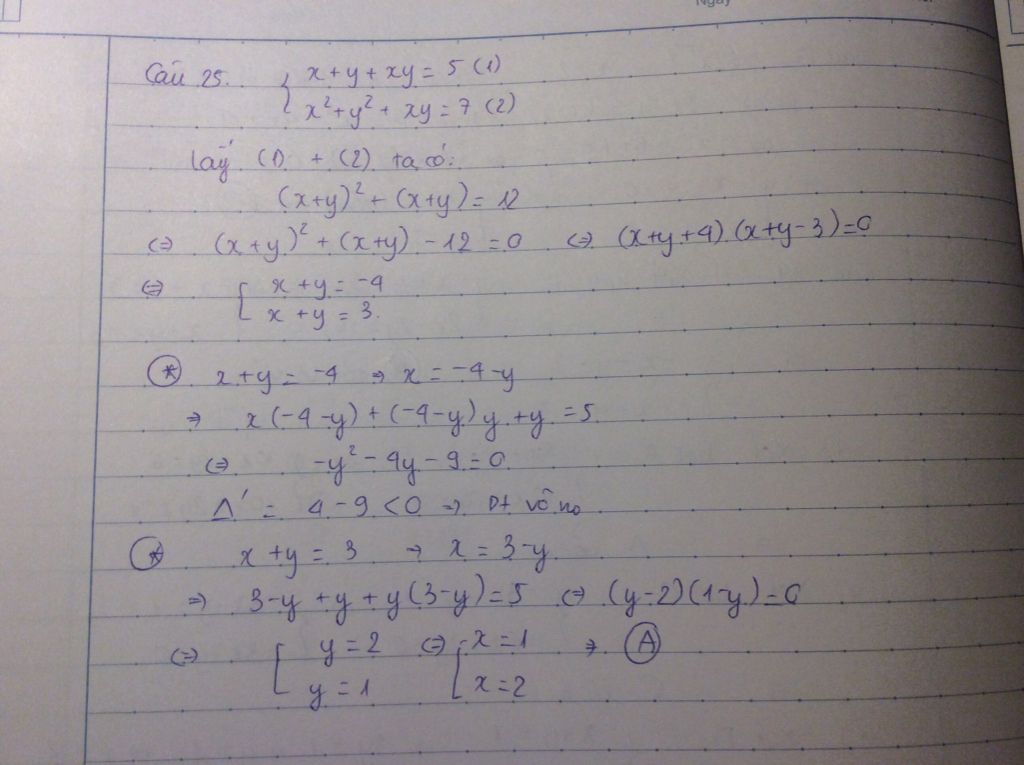 Ngày
Câu 25. { x+y+xy = 5 (1)
x²+y²+ xy = 7 (2)
lấy (1) + (2) ta có:
(x+y)² + (x+y) = 12
⇔ (x+y)² + (x+y) - 12 = 0 ⇔ (x+y+4)(x+y-3)=0
⇔ [ x+y = -4
x+y = 3.
⊛ x+y = -4 → x = -4-y
⇒ x(-4-y)+(-4-y)y+y = 5
⇔ -y² - 4y - 9 = 0
Δ' = 4 - 9 < 0 → Pt vô no
⊛ x+y = 3 → x = 3-y
⇒ 3-y+y+y(3-y)=5 ⇔ (y-2)(1-y)=0
⇔ [ y = 2 ⇔ [ x = 1 → Ⓐ
y = 1 x = 2